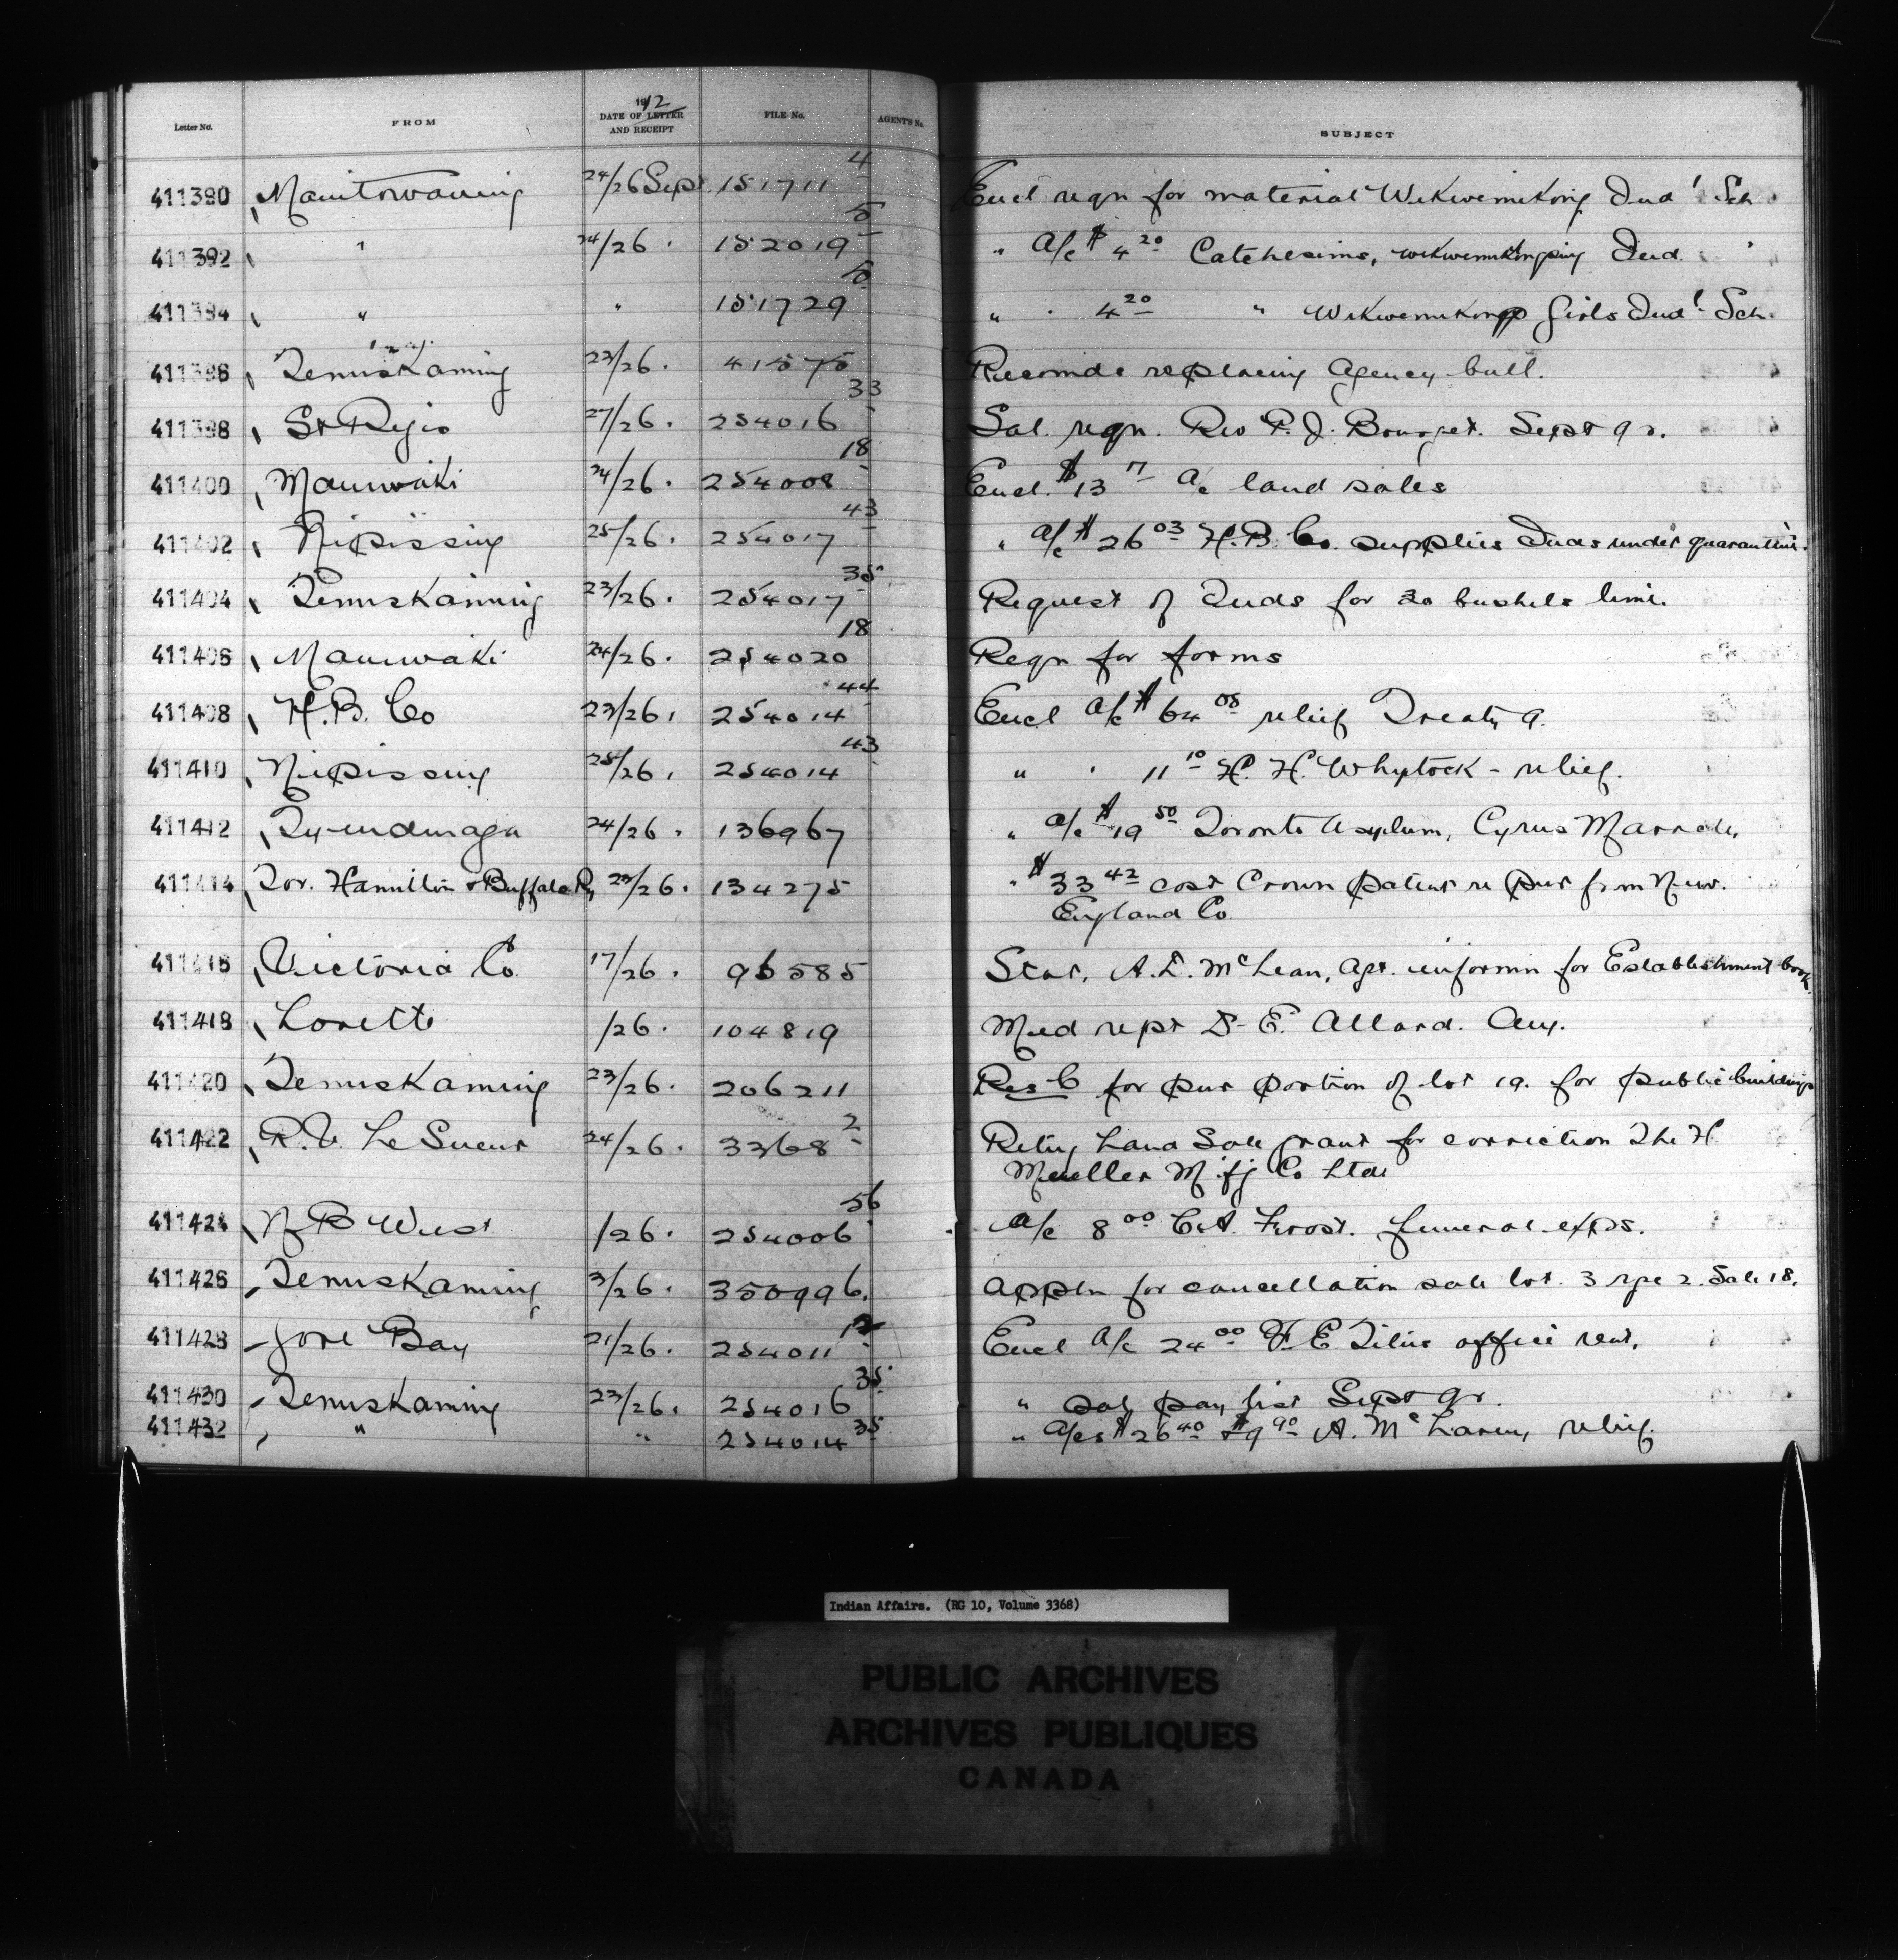 Letter No. FROM 1912 DATE OF LETTER AND RECEIPT FILE No. AGENT'S No. SUBJECT
411390 Manitowaning 24/26 Sept 151711-4 Encl reqn for material Wikwemikong Ind'l Sch
411392 " 24/26 . 152019-5 " a/c $4.20 Catchesims, Wikwemikongsing Ind. "
411394 " " 151729-5 " . 4.20 " Wikwemikong Girls Ind'l Sch.
411396 Temiskaming 23/26 . 41575 Recomds replacing Agency bull.
411398 St Regis 27/26 . 254016-33 Sal. reqn. Rev P. J. Bourget. Sept qr.
411400 Maniwaki 24/26 . 254008-18 Encl. $13.17 a/c land sales
411402 Nipissing 25/26 . 254017-43 " a/c $26.03 H.B. Co. supplies Inds under quarantine.
411404 Temiskaming 23/26 . 254017-35 Request of Inds for 20 bushels lime.
411406 Maniwaki 24/26 . 254020-18 Reqn for forms
411408 H.B. Co 23/26 . 254014-44 Encl a/c $64.08 relief Treaty 9.
411410 Nipissing 25/26 . 254014-43 " . 11.10 H. H. Whytock - relief.
411412 Tyendinaga 24/26 . 136967 " a/c $19.50 Toronto Asylum, Cyrus Maracle.
411414 Tor. Hamilton & Buffalo Ry 23/26 . 134275 " $33.42 cost Crown patent re pur from New
England Co
411416 Victoria Co 17/26 . 96585 Stat. A. D. McLean, Agt. informn for Establishment book.
411418 Lorette /26 . 104819 Med rept Dr E. Allard. Aug.
411420 Temiskaming 23/26 . 206211 Res-C for pur portion of lot 19. for public buildings
411422 R.V. LeSueur 24/26 . 3368-2 Retng Land Sale grant for correction The H
Mueller M'f'g Co Ltd
411424 N B West /26 . 254006-56 a/c 8.00 C.A. Frost. funeral exps.
411426 Temiskaming 3/26 . 350996. Appln for cancellation sale lot. 3 rge 2. Sale 18.
411428 Gore Bay 21/26 . 254011-12 Encl a/c 24.00 F. E. Titus office rent.
411430 Temiskaming 23/26 . 254016-35 " sal pay list Sept qr.
411432 " " 254014-35 " a/cs $26.40 & $9.90 A. McLaren, relief.
Indian Affairs. (RG 10, Volume 3368)
PUBLIC ARCHIVES
ARCHIVES PUBLIQUES
CANADA